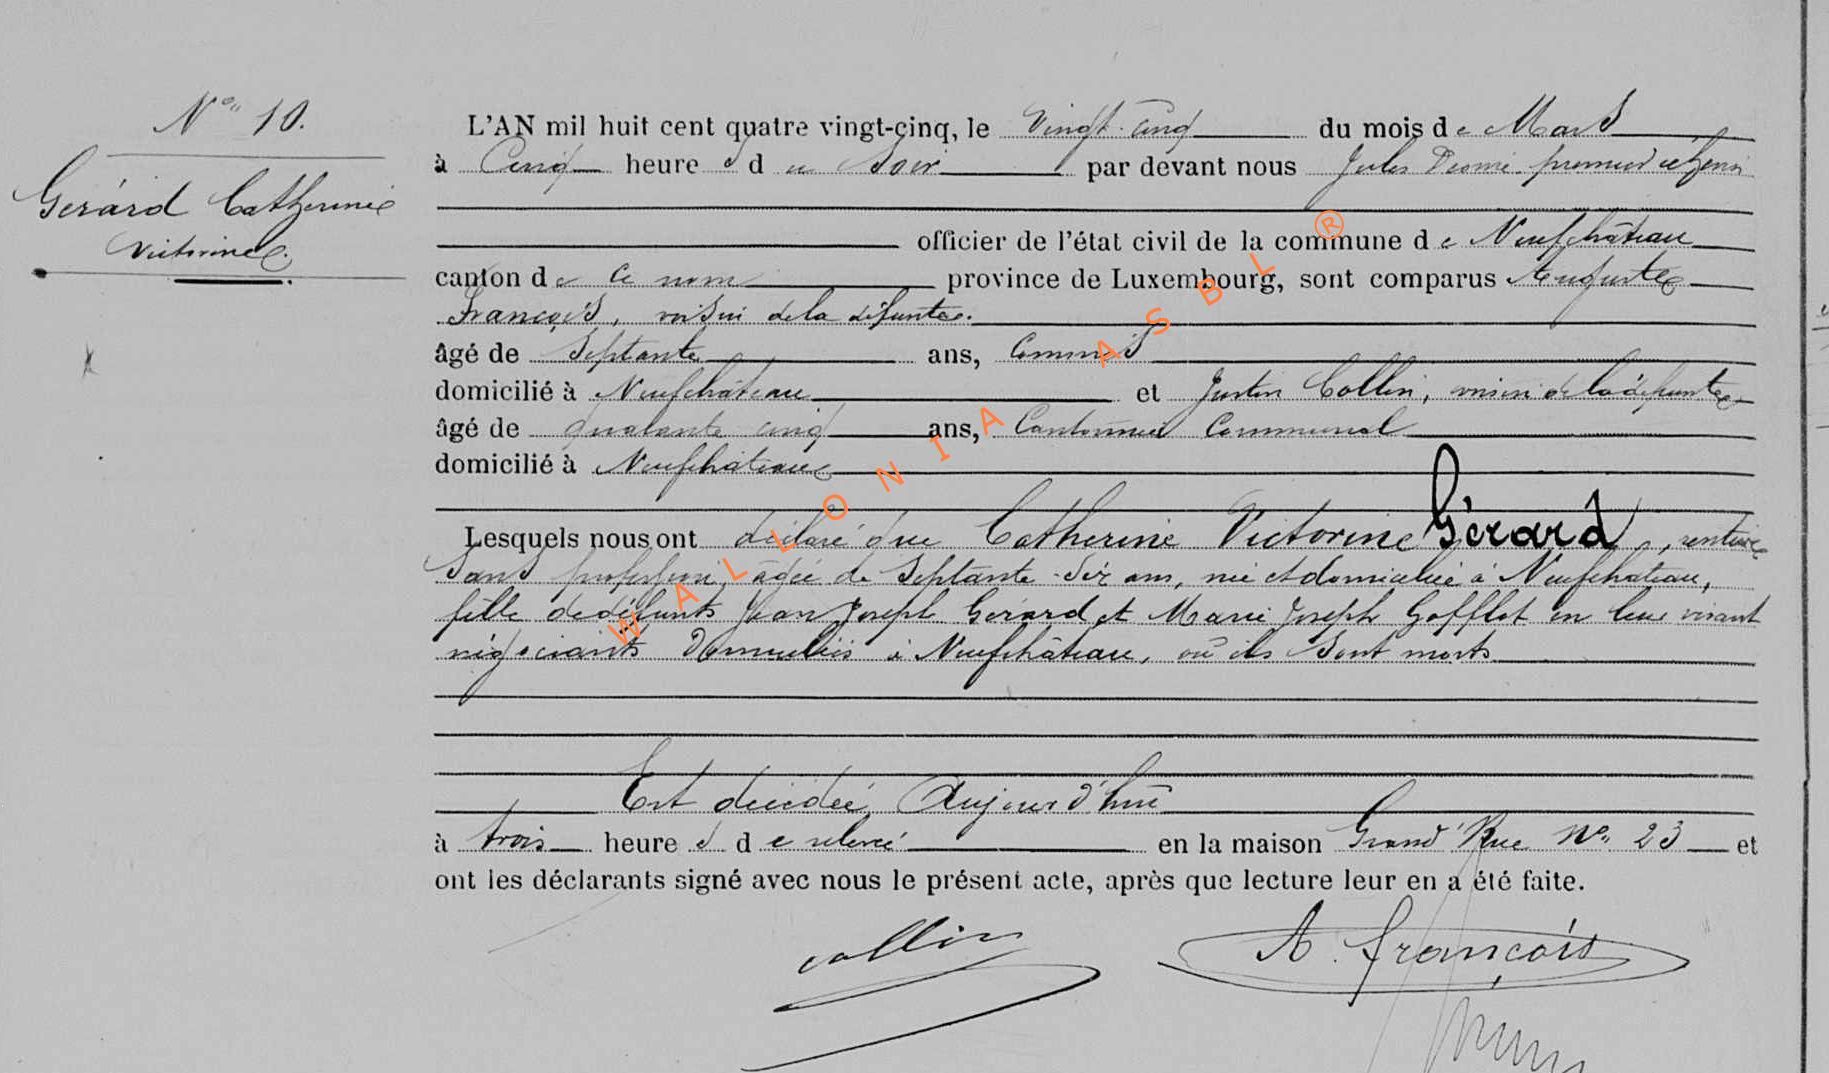 N° 10.
Gérard Catherine
Victorine.
L'AN mil huit cent quatre vingt-cinq, le Vingt-cinq du mois de Mars
à Cinq heures du Soir par devant nous Jules premier échevin
officier de l'état civil de la commune de Neufchâteau
canton de ce nom province de Luxembourg, sont comparus Auguste
François, voisin de la défunte.
âgé de Septante ans, Commis
domicilié à Neufchâteau et Justin Collin, voisin de la défunte
âgé de quarante cinq ans, Cantonnier Communal
domicilié à Neufchâteau
Lesquels nous ont déclaré que Catherine Victorine Gérard, rentière
Sans profession, âgée de Septante-dix ans, née et domiciliée à Neufchâteau,
fille de défunts Jean Joseph Gérard et Marie Joseph Gofflot en leur vivant
négociants domiciliés à Neufchâteau, où ils Sont morts
Est décédée Aujourd'hui
à trois heures de relevé en la maison Grand'Rue N° 23 et
ont les déclarants signé avec nous le présent acte, après que lecture leur en a été faite.
Collin
A. François
WALLONIA ASBL ®